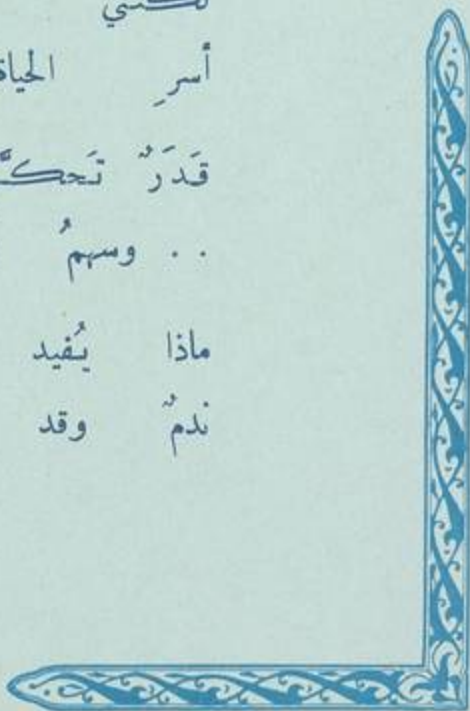 لكنني
أسرِ الحياة
قَدَرٌ تَحكَّ
. . وسهمُ
ماذا يُفيد
ندمٌ وقد